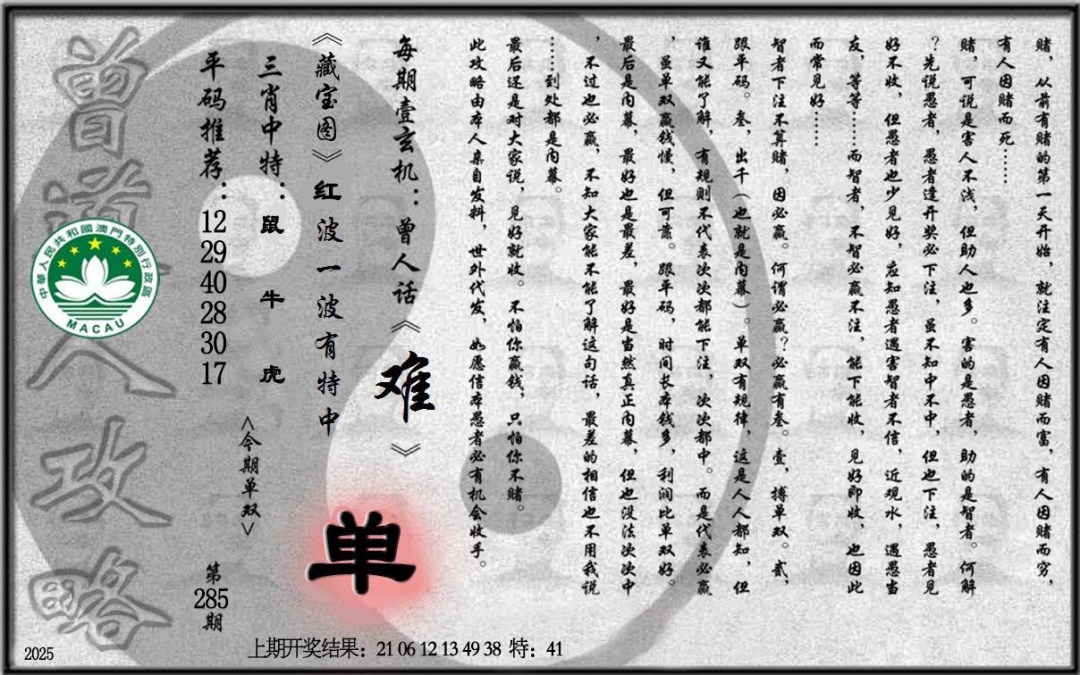 赌，从前有赌的第一天开始，就注定有人因赌而富，有人因赌而穷，
有人因赌而死……
赌，可说是害人不浅，但助人也多。害的是愚者，助的是智者。何解
？先说愚者，愚者逢开奖必下注，虽不知中不中，但也下注，愚者见
好不收，但愚者也少见好，应知愚者遇害智者不信，近观水，遇愚当
友，等等……而智者，不智必赢不注，能下能收，见好即收，也因此
而常见好……
智者下注不算赌，因必赢。何谓必赢？必赢有叁。壹，搏单双。贰，
跟单码。叁，出千（也就是内幕）。单双有规律，这是人人都知，但
谁又能了解，有规则不代表次次都能下注，次次都中。而是代表必赢
，虽单双赢钱慢，但可靠。跟单码，时间长本钱多，利润比单双好。
最后是内幕，最好也是最差，最好是当然真正内幕，但也没法次次中
，不过也必赢，不知大家能不能了解这句话，最差的相信也不用我说
……到处都是内幕。
最后还是对大家说，见好就收。不怕你赢钱，只怕你不赌。
此攻略由本人亲自发料，世外代发，如愿信本愚者必有机会收手。
每期壹玄机：曾人话《难》
《藏宝图》红波一波有特中
单
三肖中特：鼠 牛 虎
<今期单双>
平码推荐：12 29 40 28 30 17
第285期
曾道人攻略
中華人民共和國澳門特別行政區
MACAU
2025
上期开奖结果：21 06 12 13 49 38 特：41